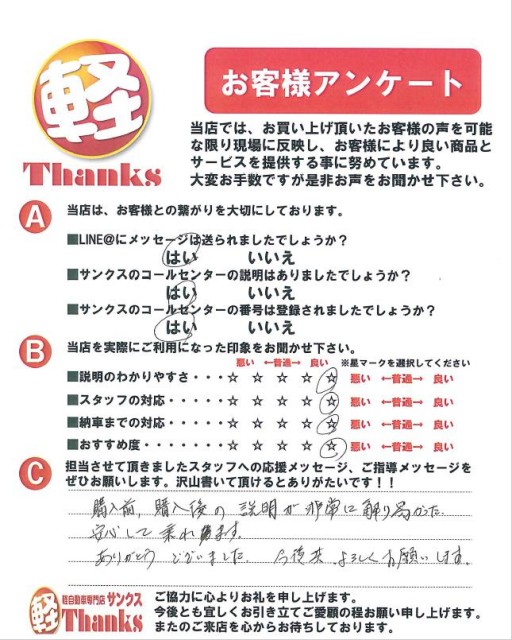 軽
Thanks
お客様アンケート
当店では、お買い上げ頂いたお客様の声を可能
な限り現場に反映し、お客様により良い商品と
サービスを提供する事に努めています。
大変お手数ですが是非お声をお聞かせ下さい。
A 当店は、お客様との繋がりを大切にしております。
■LINE@にメッセージは送られましたでしょうか？
はい いいえ
■サンクスのコールセンターの説明はありましたでしょうか？
はい いいえ
■サンクスのコールセンターの番号は登録されましたでしょうか？
はい いいえ
B 当店を実際にご利用になった印象をお聞かせ下さい。
悪い ←普通→ 良い ※星マークを選択してください
■説明のわかりやすさ・・・・☆ ☆ ☆ ☆ ☆ 悪い ←普通→ 良い
■スタッフの対応・・・・・☆ ☆ ☆ ☆ ☆ 悪い ←普通→ 良い
■納車までの対応・・・・・☆ ☆ ☆ ☆ ☆ 悪い ←普通→ 良い
■おすすめ度・・・・・・・☆ ☆ ☆ ☆ ☆ 悪い ←普通→ 良い
C 担当させて頂きましたスタッフへの応援メッセージ、ご指導メッセージを
ぜひお願いします。沢山書いて頂けるとありがたいです！！
購入前、購入後の説明が非常に解り易かった。
安心して乗れます。
ありがとうございました。今後共、よろしくお願いします。
軽 軽自動車専門店 サンクス
Thanks
ご協力に心よりお礼を申し上げます。
今後とも宜しくお引き立てご愛顧の程お願い申し上げます。
またのご来店を心からお待ちしております。